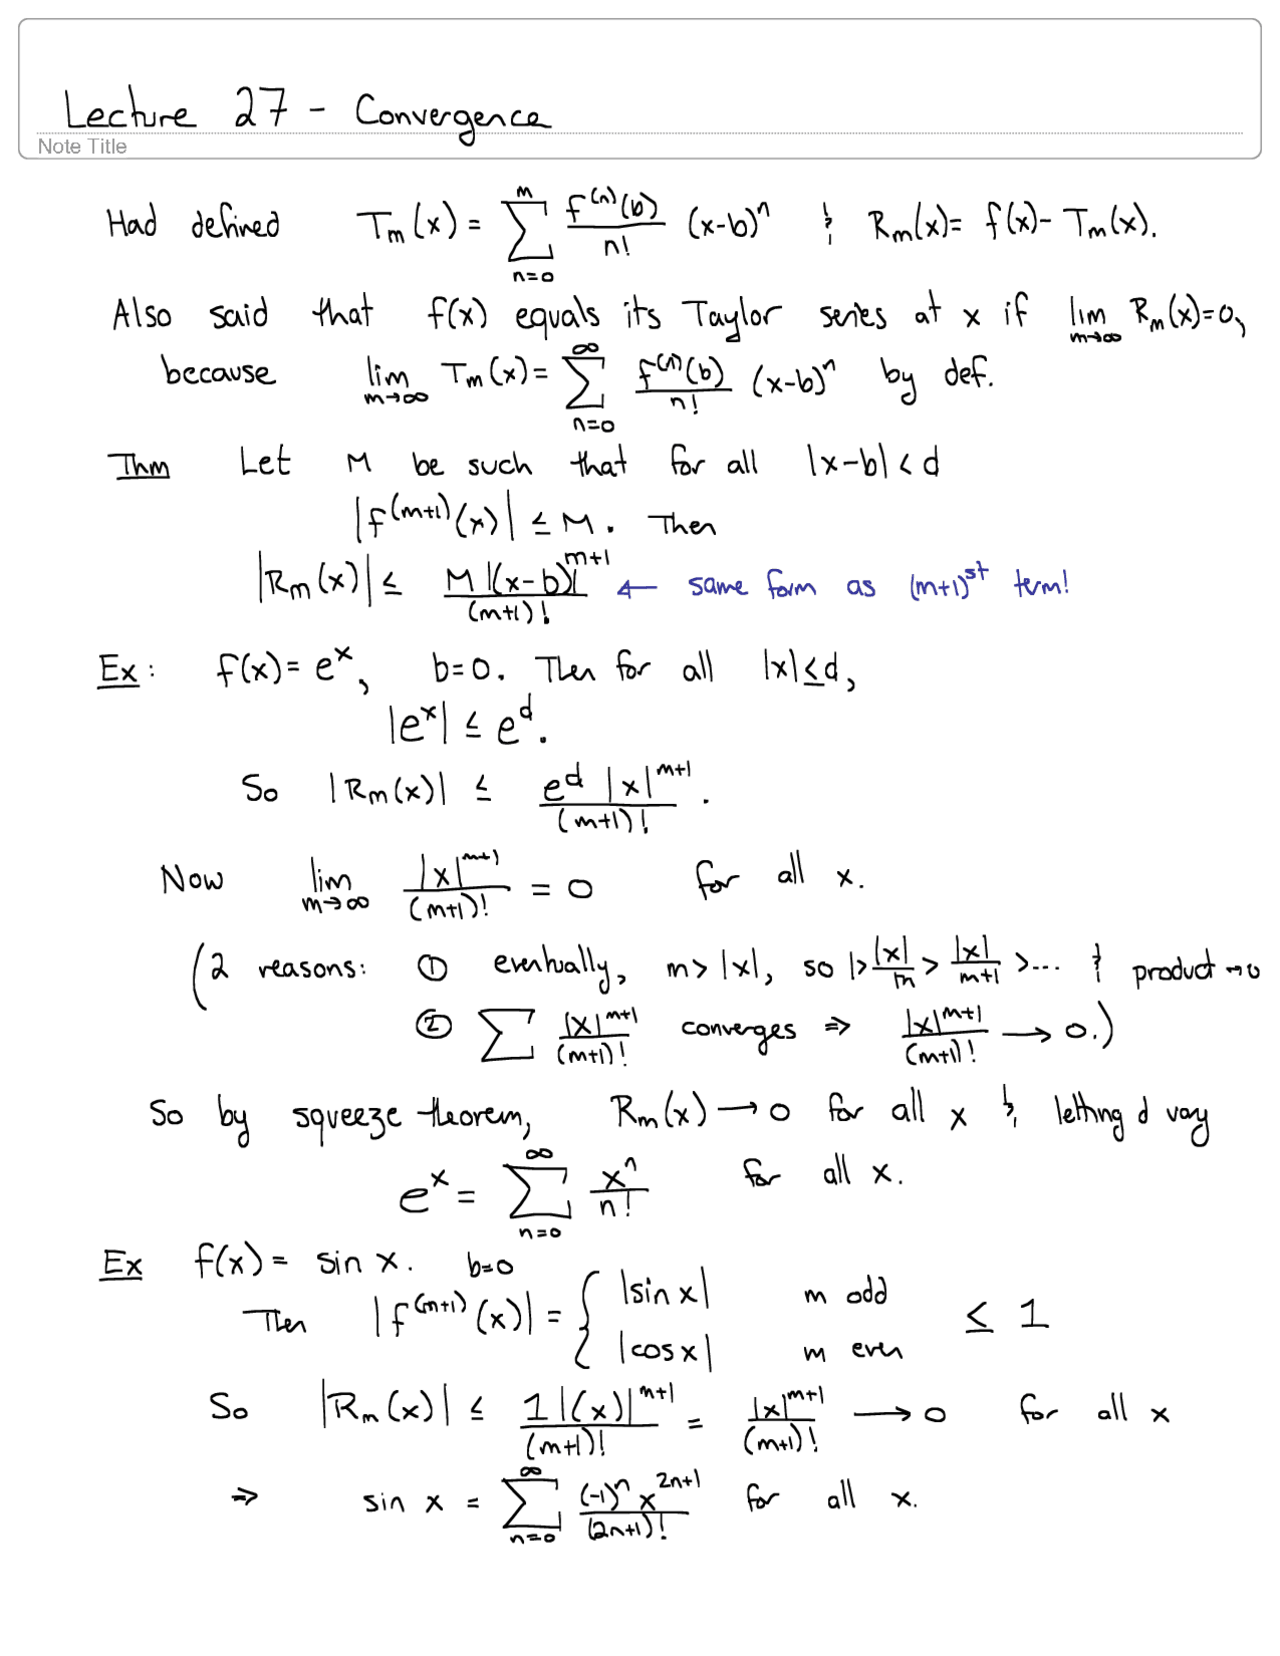 Lecture 27 - Convergence
Note Title
Had defined T_m(x) = ∑_{n=0}^{m} f^{(n)}(b)/n! (x-b)^n & R_m(x) = f(x) - T_m(x).
Also said that f(x) equals its Taylor series at x if lim_{m→∞} R_m(x) = 0,
because lim_{m→∞} T_m(x) = ∑_{n=0}^{∞} f^{(n)}(b)/n! (x-b)^n by def.
Thm Let M be such that for all |x-b| < d
|f^{(m+1)}(x)| ≤ M. Then
|R_m(x)| ≤ M |(x-b)|^{m+1}/(m+1)! ← same form as (m+1)^{st} term!
Ex: f(x) = e^x, b=0. Then for all |x| ≤ d,
|e^x| ≤ e^d.
So |R_m(x)| ≤ e^d |x|^{m+1}/(m+1)!.
Now lim_{m→∞} |x|^{m+1}/(m+1)! = 0 for all x.
(2 reasons: ① eventually, m > |x|, so 1 > |x|/m > |x|/(m+1) > ... & product → 0
② ∑ |x|^{m+1}/(m+1)! converges ⇒ |x|^{m+1}/(m+1)! → 0.)
So by squeeze theorem, R_m(x) → 0 for all x &, letting d vary
e^x = ∑_{n=0}^{∞} x^n/n! for all x.
Ex f(x) = sin x. b=0
Then |f^{(m+1)}(x)| = { |sin x| m odd
|cos x| m even ≤ 1
So |R_m(x)| ≤ 1|(x)|^{m+1}/(m+1)! = |x|^{m+1}/(m+1)! → 0 for all x
⇒ sin x = ∑_{n=0}^{∞} (-1)^n x^{2n+1}/(2n+1)! for all x.